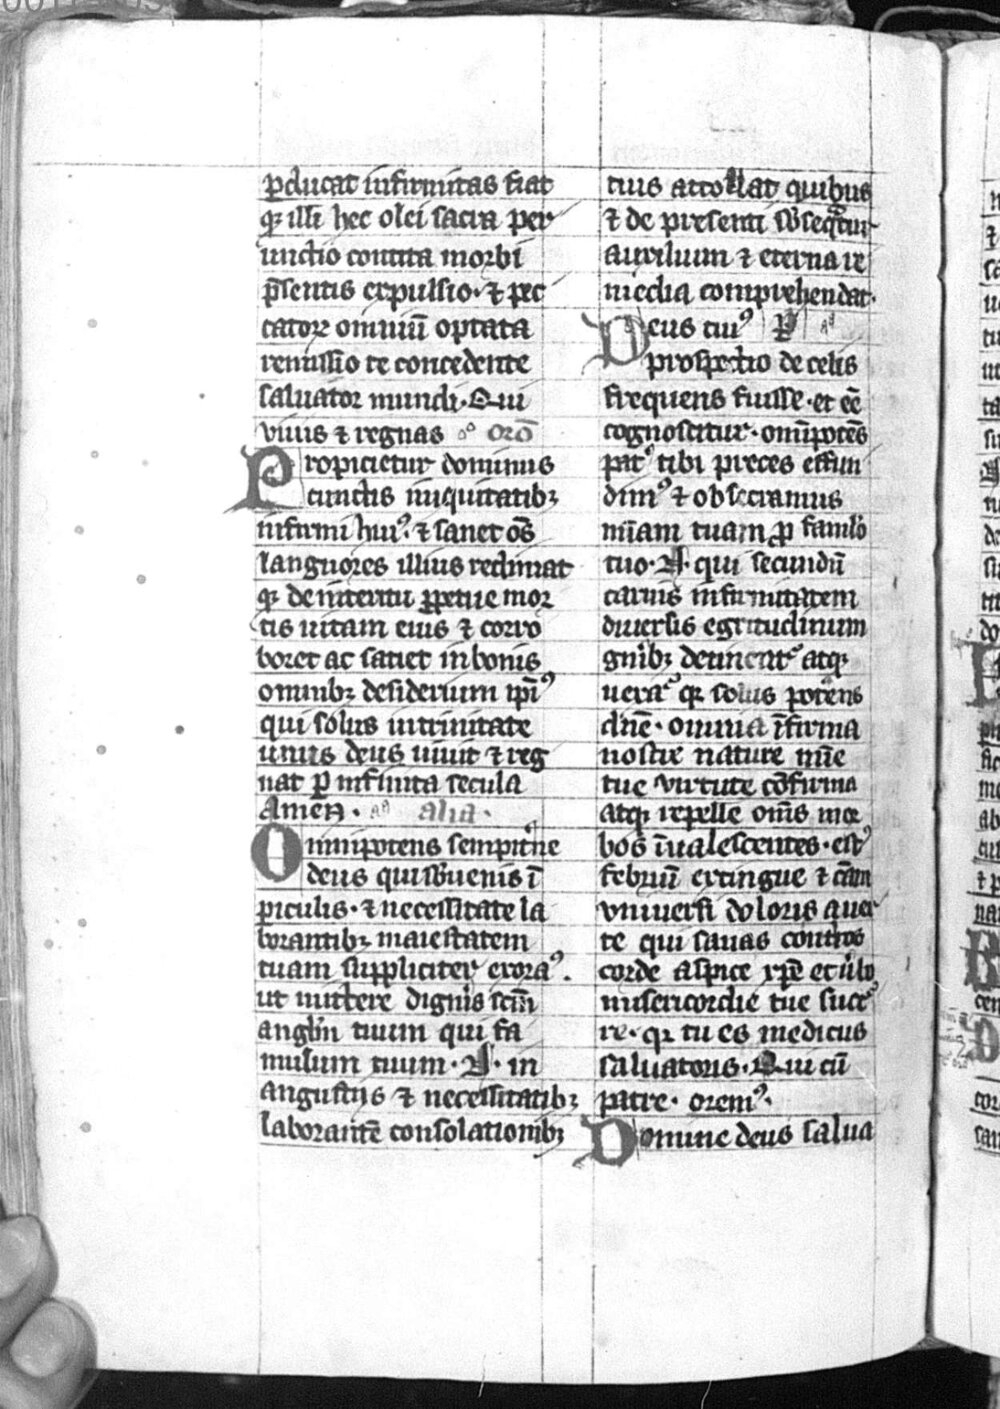 ꝑducat infirmitas fiat
qꝫ illi hec olei sacra per
unctio contita morbi
p̄sentis expulsio · ⁊ pec
catoꝝ omniū optata
remissio te concedente
saluator mundi · Qui
viuis ⁊ regnas orō
Propicietur dominus
cunctis iniquitatibꝫ
infirmi huiꝰ · ⁊ sanet oēs
languores illius redimat
qꝫ de interitu ꝑpetue moꝛ
tis uitam eius ⁊ corro
boret ac satiet in bonis
omnibꝫ desiderium ip̄iꝰ
qui solus in trinitate
unus deus uiuit ⁊ reg
nat ꝑ infinita secula
Amen · alia ·
Omnipotens sempit̄ne
deus qui sbuenis ī
ꝑiculis · ⁊ necessitate la
borantibꝫ maiestatem
tuam suppliciter exoraꝰ .
ut mittere dignis scm̄
angl̄m tuum qui fa
mulum tuum · N · in
angustijs ⁊ necessitatibꝫ
laborantē consolationibꝫ
tuis attollat quibus
⁊ de presenti sbsequatur
auxilium ⁊ eterna re
media comprehendat ·
Deus cuiꝰ
prospectio de celis
frequens fuisse · et eē
cognoscitur · omīpotēs
pat̉ tibi preces effun
dimꝰ ⁊ obsecramus
mīam tuam ꝓ famulo
tuo · N · qui secundū
carnis infirmitatem
diuersis egritudinum
gn̄ibꝫ detinent̉ atqꝫ
uexat̉ qꝫ solus potens
dn̄e · omnia īfirma
nostre nature mūe
tue virtute cōfirma
atqꝫ repelle om̄s moꝛ
bos īualescentes · estꝰ
febriū extingue ⁊ cām
vniuersi doloris auer
te qui sanas contritos
corde aspice xp̄e et
misericordie tue succᵉ
re · qꝫ tu es medicus
saluatoris · Qui cū
patre · oremꝰ ·
Domine deus salua